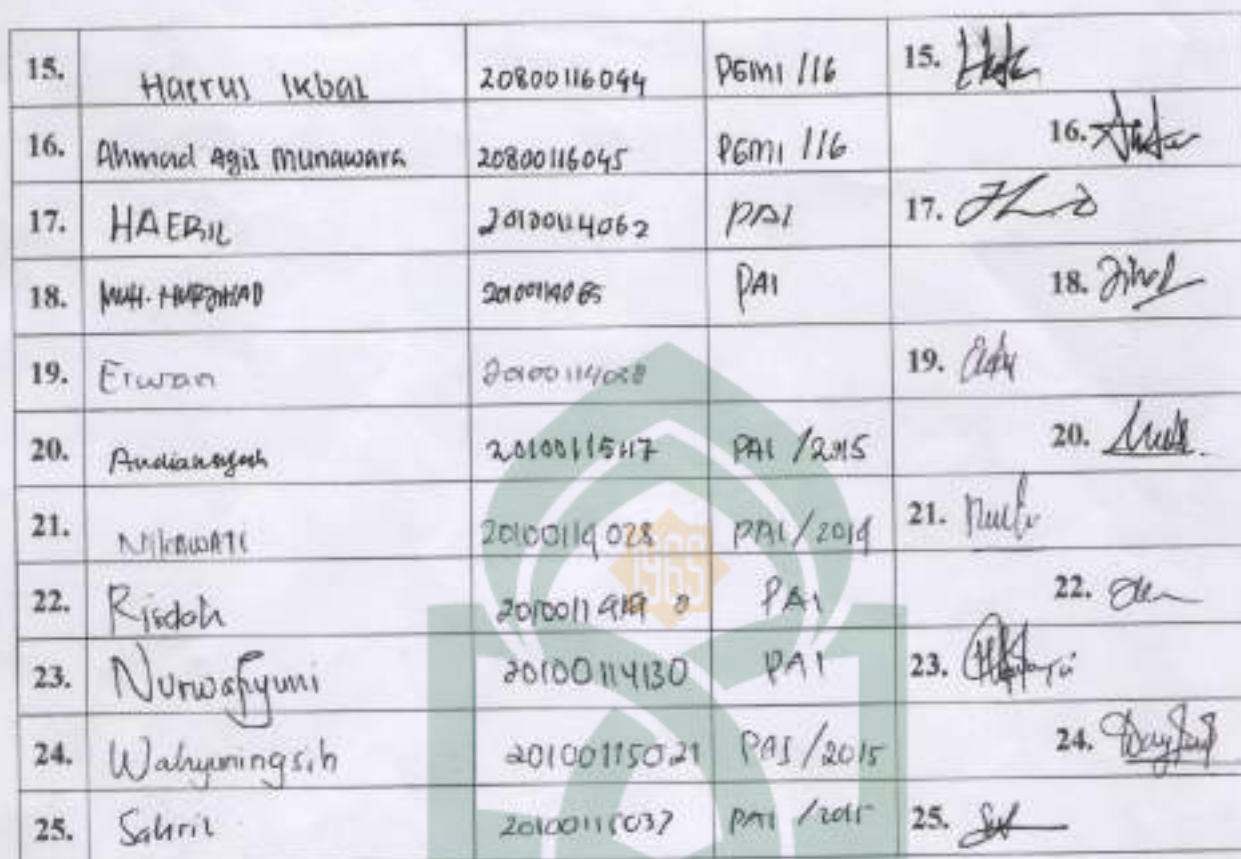 15. Haerul Ikbal 20800116044 PGMI /16 15.
16. Ahmad Agil Munawara 20800116045 PGMI /16 16.
17. HAERIL 20100114062 PAI 17.
18. MUH. PAI 18.
19. Erwan 20100114028 19.
20. Andiansyah 20100115117 PAI /2015 20.
21. 20100114028 PAI/2014 21.
1965
22. Risdah PAI 22.
23. Nurwahyuni 20100114130 PAI 23.
24. Wahyuningsih 20100115021 PAI /2015 24.
25. Sahril 20100115037 PAI /2015 25.